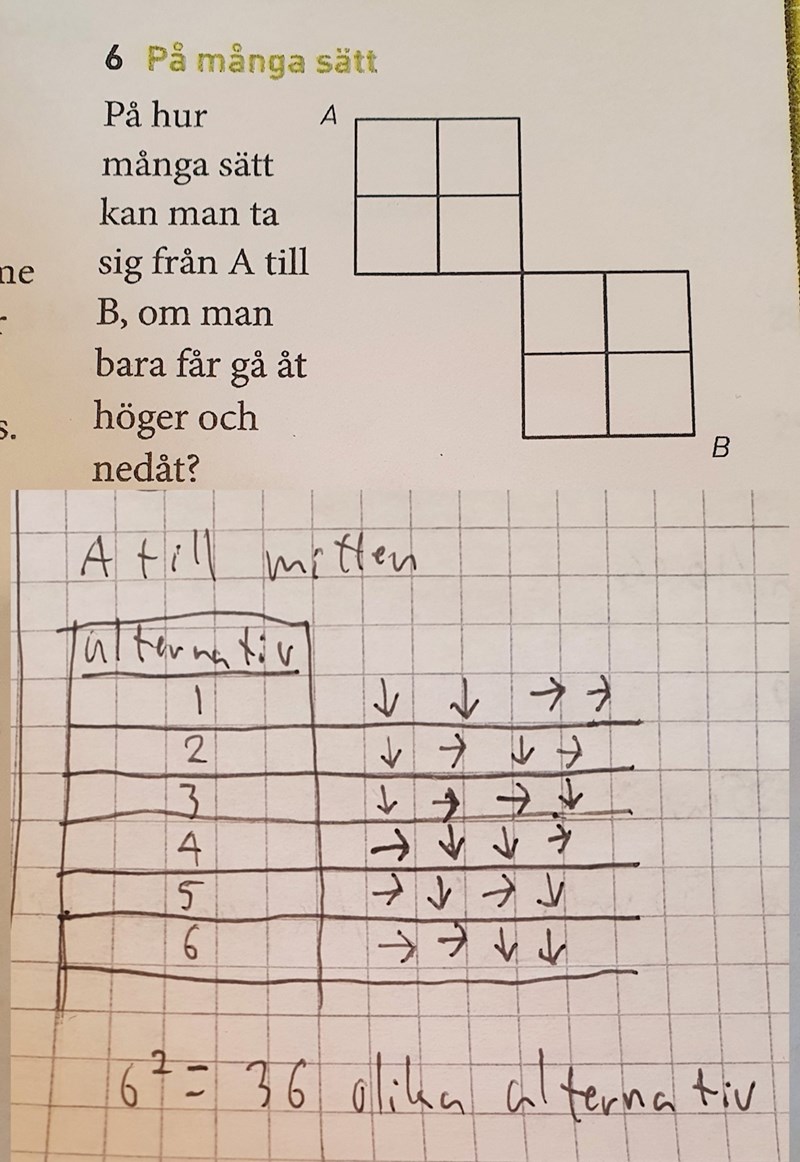 6 På många sätt
På hur
många sätt
kan man ta
ne
sig från A till
r
B, om man
bara får gå åt
s.
höger och
nedåt?
A
B
A till mitten
alternativ
1 ↓ ↓ → →
2 ↓ → ↓ →
3 ↓ → → ↓
4 → ↓ ↓ →
5 → ↓ → ↓
6 → → ↓ ↓
6² = 36 olika alternativ